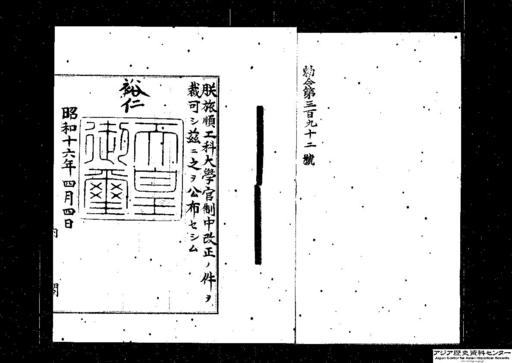 勅令第三百九十二號
朕旅順工科大學官制中改正ノ件ヲ
裁可シ茲ニ之ヲ公布セシム
裕仁
天皇
御璽
昭和十六年四月四日
内閣
アジア歴史資料センター
Japan Center for Asian Historical Records